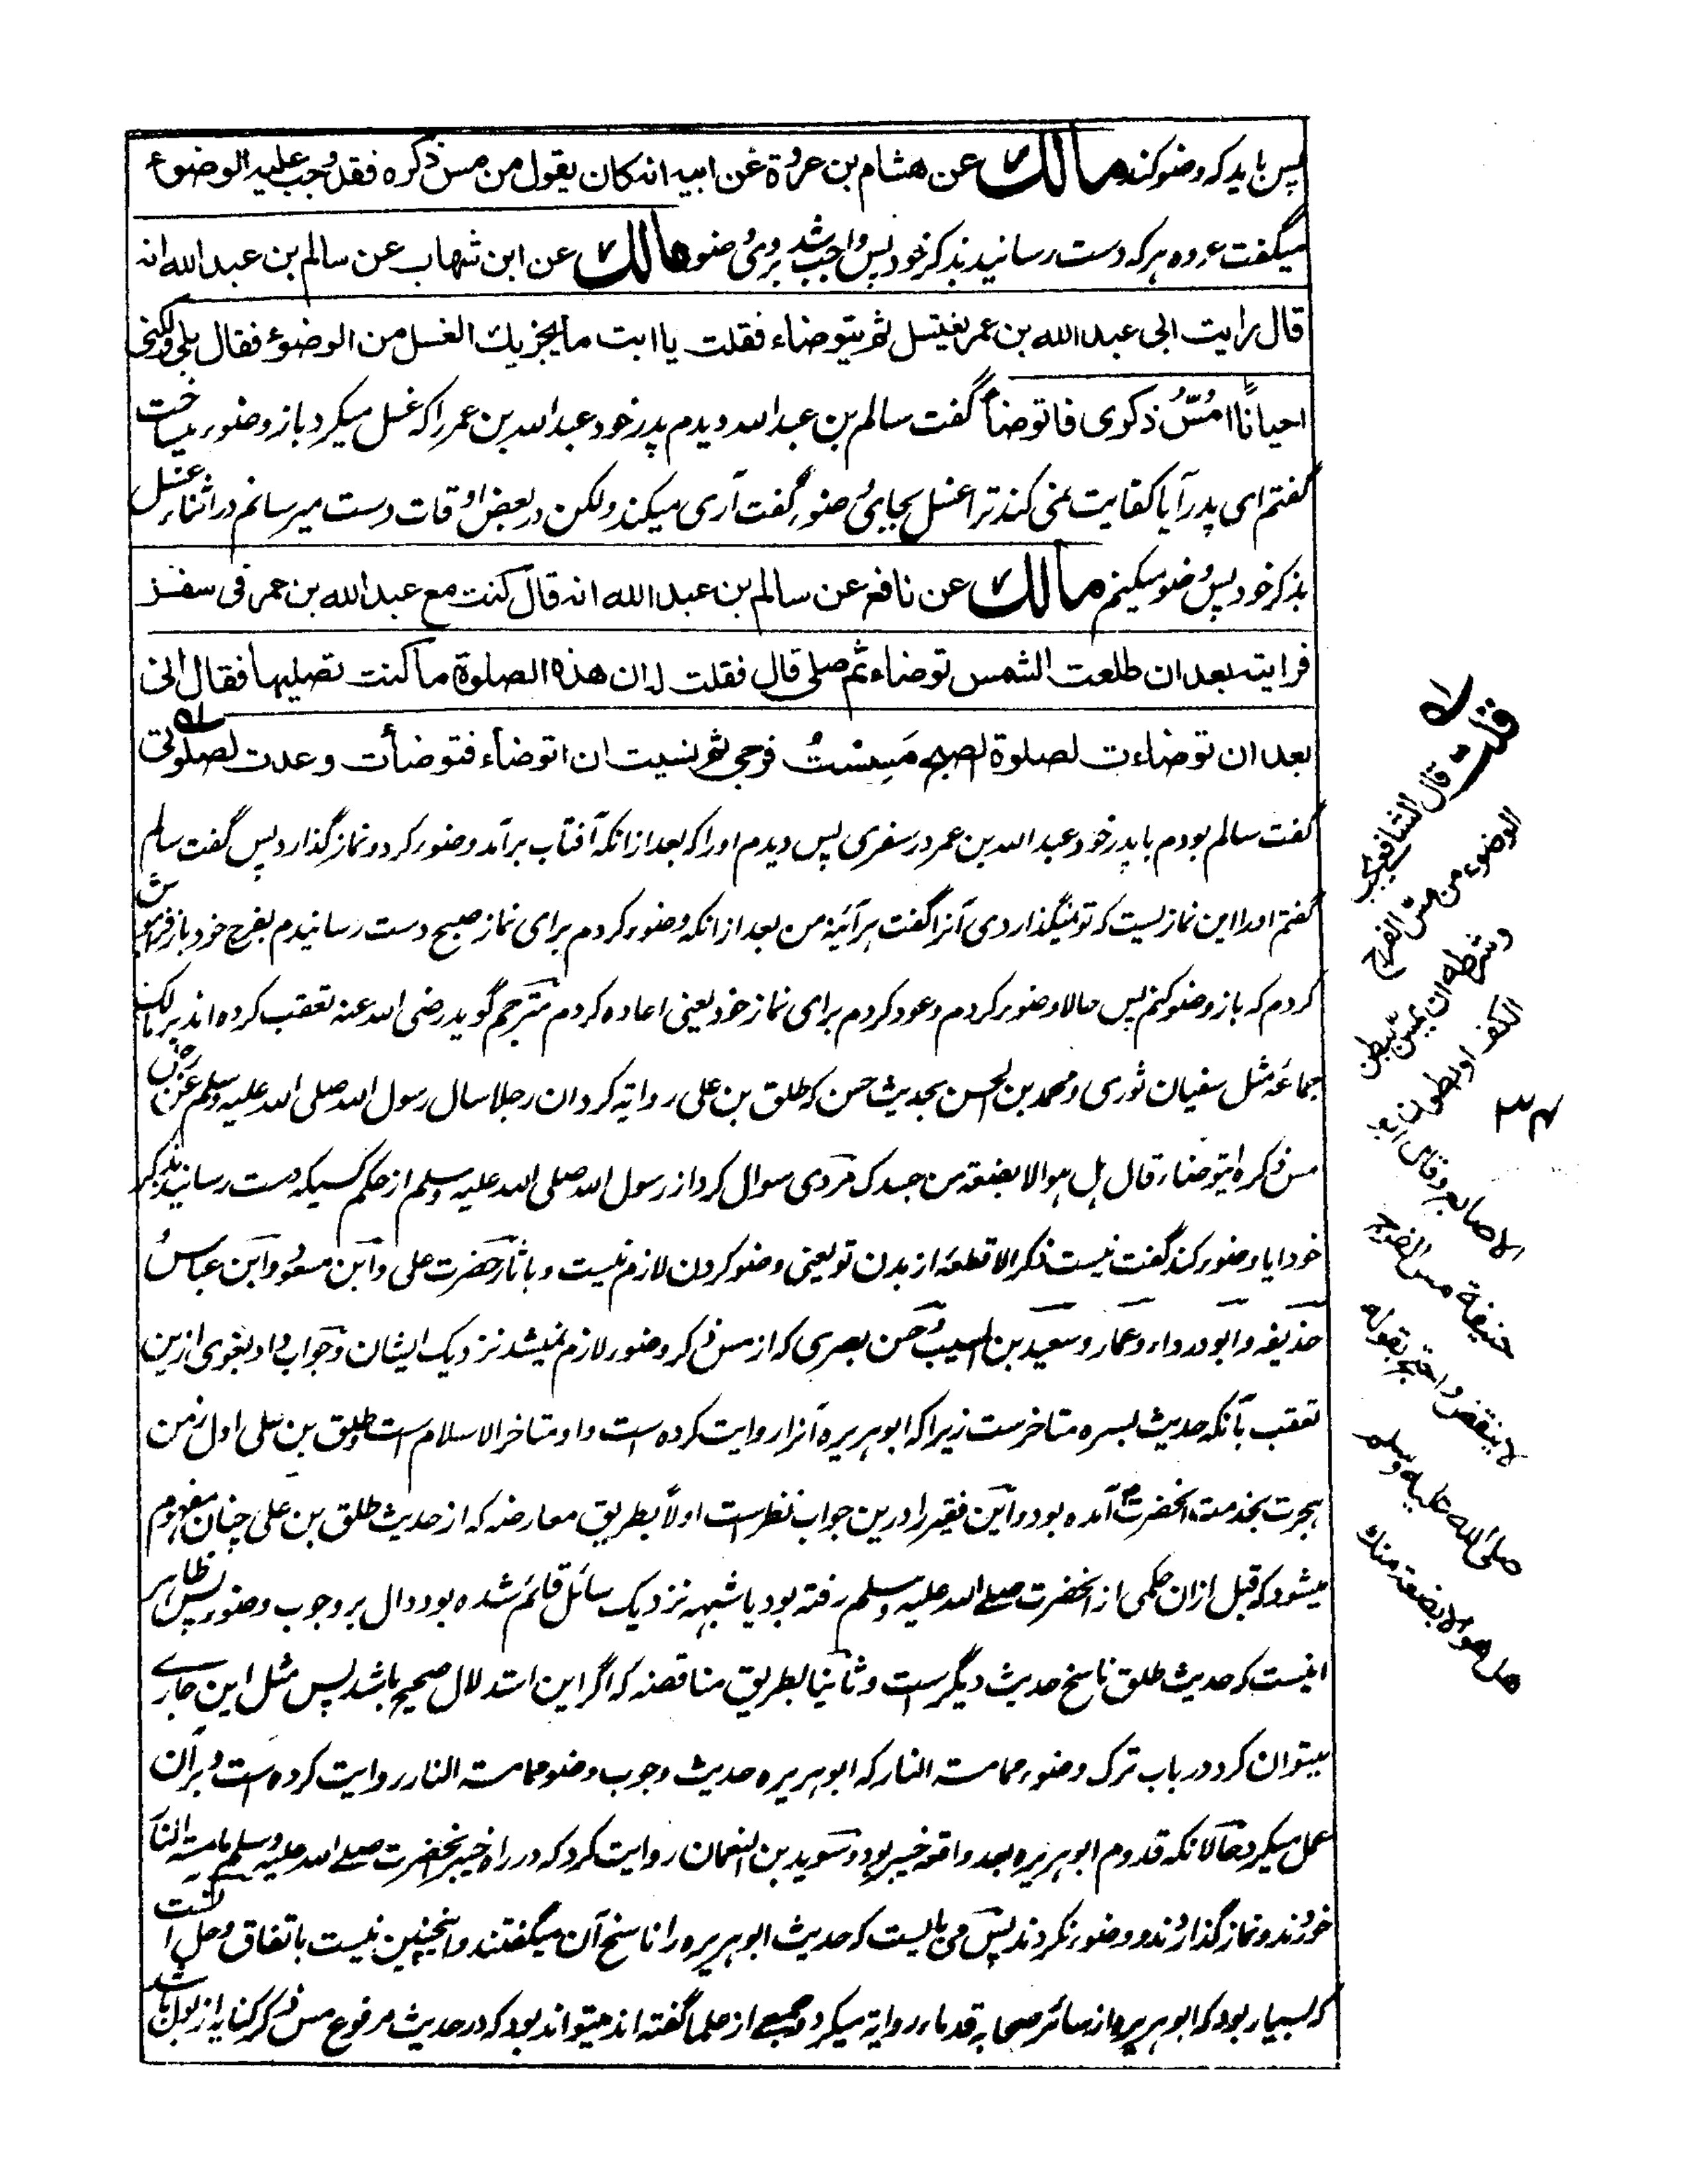 پس باید که وضو کند مالك عن هشام بن عروة عن ابیه انه کان یقول من مس ذکره فقد وجب علیه الوضوء
میگفت عروه هر که دست رسانید بذکر خود پس واجب شد بروی وضو مالك عن ابن شهاب عن سالم بن عبد الله انه
قال رایت ابی عبد الله بن عمر یغتسل ثم یتوضاء فقلت یا ابت ما یجزیك الغسل من الوضوء فقال بلی ولکنی
احیانًا امُسُّ ذکری فاتوضأ گفت سالم بن عبد الله دیدم پدر خود عبد الله بن عمر را که غسل میکرد باز وضوء میساخت
گفتم ای پدر آیا کفایت نمی کند ترا غسل بجای وضوء گفت آری میکند ولکن در بعض اوقات دست میرسانم در اثناء غسل
بذکر خود پس وضو میکنم مالك عن نافع عن سالم بن عبد الله انه قال کنت مع عبد الله بن عمر فی سفر
فرایته بعد ان طلعت الشمس توضاء ثم صلی قال فقلت له ان هذه الصلوة ما کنت تصلیها فقال انی
بعد ان توضاءت لصلوة الصبح مَسِسْتُ فرجی ثم نسیت ان اتوضاء فتوضأت وعدت لصلوتی
گفت سالم بودم با پدر خود عبد الله بن عمر در سفری پس دیدم او را که بعد ازانکه آفتاب برآمد وضوء کرد و نماز گذارد پس گفت سالم
گفتم او را این نمازیست که تو نمیگذاردی آنرا گفت هرآئینه من بعد ازانکه وضوء کردم برای نماز صبح دست رسانیدم بفرج خود باز فراموش
کردم که باز وضو کنم پس حالا وضوء کردم و عود کردم برای نماز خود یعنی اعاده کردم مترجم گوید رضی الله عنه تعقب کرده اند بر مالک
جماعه مثل سفیان ثوری و محمد بن الحسن بحدیث حسن که طلق بن علی روایة کرد ان رجلا سال رسول الله صلی الله علیه وسلم عن رجل
مس ذکره ایتوضاء قال هل هو الا بضعة من جسدک مردی سوال کرد از رسول الله صلی الله علیه وسلم از حکم کسیکه دست رسانید بذکر
خود ایا وضوء کند گفت نیست ذکر الا قطعه از بدن تو یعنی وضو کردن لازم نیست و بآثار حضرت علی و ابن مسعود و ابن عباس
حذیفه و ابو درداء و عمار و سعید بن المسیب و حسن بصری که از مس ذکر وضوء لازم نمیشد نزدیک ایشان و جواب داد بغوی ازین
تعقب بآنکه حدیث بسره متاخرست زیرا که ابو هریره آنرا روایت کرده است و او متاخر الاسلام است و طلق بن علی اول زمن
هجرت بخدمت آنحضرت آمده بود و این فقیر را درین جواب نظر است اولاً بطریق معارضه که از حدیث طلق بن علی چنان مفهوم
میشود که قبل ازان حکمی از آنحضرت صلے الله علیه وسلم رفته بود یا شبهه نزدیک سائل قائم شده بود دال بر وجوب وضوء پس ظاهر
اینست که حدیث طلق ناسخ حدیث دیگر است و ثانیا بطریق مناقضه که اگر این استدلال صحیح باشد پس مثل این جاری
میتوان کرد در باب ترک وضوء ممامست النار که ابو هریره حدیث وجوب وضو ممامست النار روایت کرده است و بر آن
عمل میکرد حالانکه قدوم ابو هریره بعد واقعه خیبر بود و سوید بن النعمان روایت کرد که در راه خیبر آنحضرت صلے الله علیه وسلم مامست النار
خوردند و نماز گذاردند و وضوء نکردند پس می بایست که حدیث ابو هریره را ناسخ آن میگفتند و اینچنین نیست باتفاق و حل آنست
که بسیار بود که ابو هریره از سائر صحابه قدماء روایة میکرد و جمعے از علما گفته اند میتواند بود که در حدیث مرفوع مس ذکر کنایه از بول باشد
قلت
قال الشافعی یجب
الوضوء من مس الفرج
وشرطه ان یمس ببطن
الکف او بطون
الاصابع وقال ابو
حنیفة مس الفرج
لا ینقض واحتج بقوله
صلی الله علیه وسلم
هل هو الا بضعة منك
۳۴